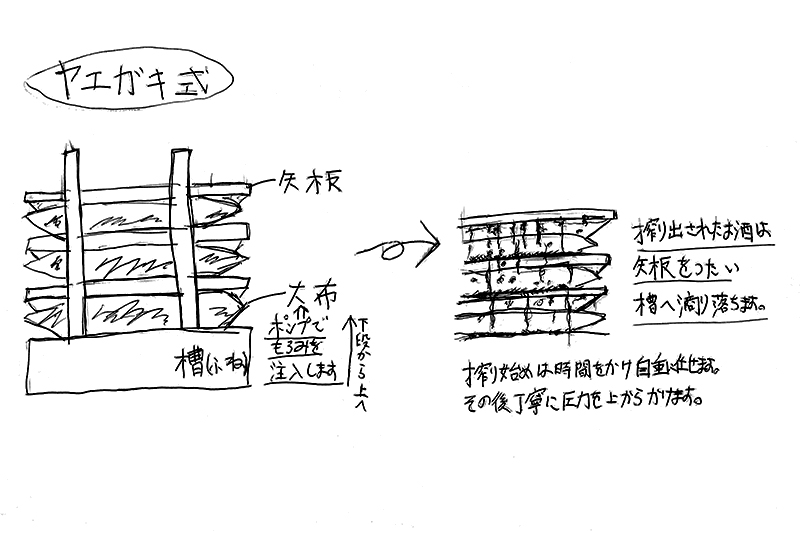 ヤエガキ式
矢板
大布
⇑
ポンプで
もろみを
注入します
下段から上へ
槽(ふね)
搾り出されたお酒は
矢板をつたい
槽へ滴り落ちます。
搾り始めは時間をかけ自重に任せます。
その後丁寧に圧力を上からかけます。